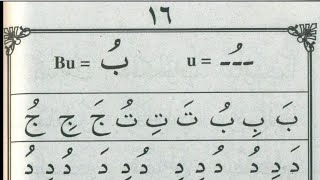 ١٦
Bu = بُ    u = ـُـ
بَ بِ بُ تَ تِ تُ جَ جِ جُ
دَ دِ دُ دُ دِ دِ دُ دُ دَ دُ دِ دُ